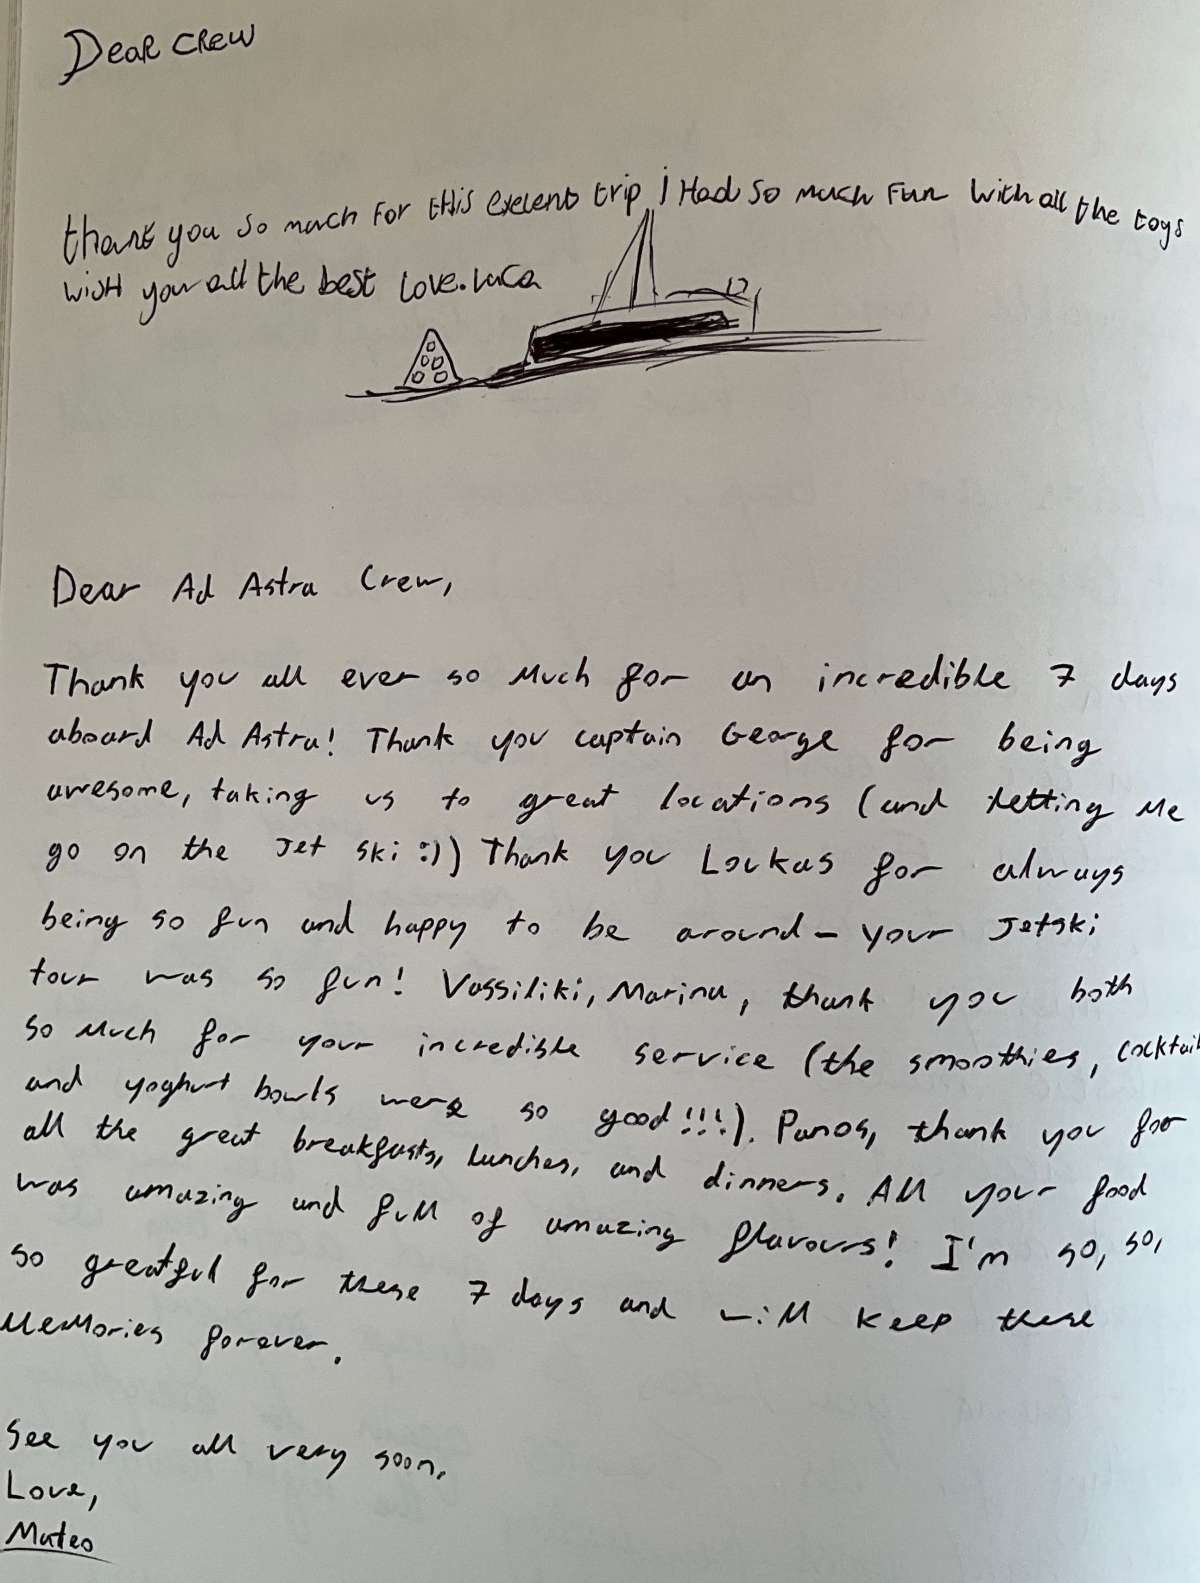 Dear Crew
thank you so much For this exelent trip i Had so much Fun with all the toys
wish you all the best Love. Luca
Dear Ad Astra Crew,
Thank you all ever so Much for an incredible 7 days
aboard Ad Astra! Thank you captain George for being
awesome, taking us to great locations (and letting Me
go on the Jet ski :)) Thank you Loukas for always
being so fun and happy to be around - your Jetski
tour was so fun! Vassiliki, Marina, thank you both
so Much for your incredible service (the smoothies, cocktail
and yoghurt bowls were so good!!!). Panos, thank you for
all the great breakfasts, lunches, and dinners. All your food
was amazing and full of amazing flavours! I'm so, so,
so greatful for these 7 days and will keep these
Memories forever.
See you all very soon.
Love,
Mateo